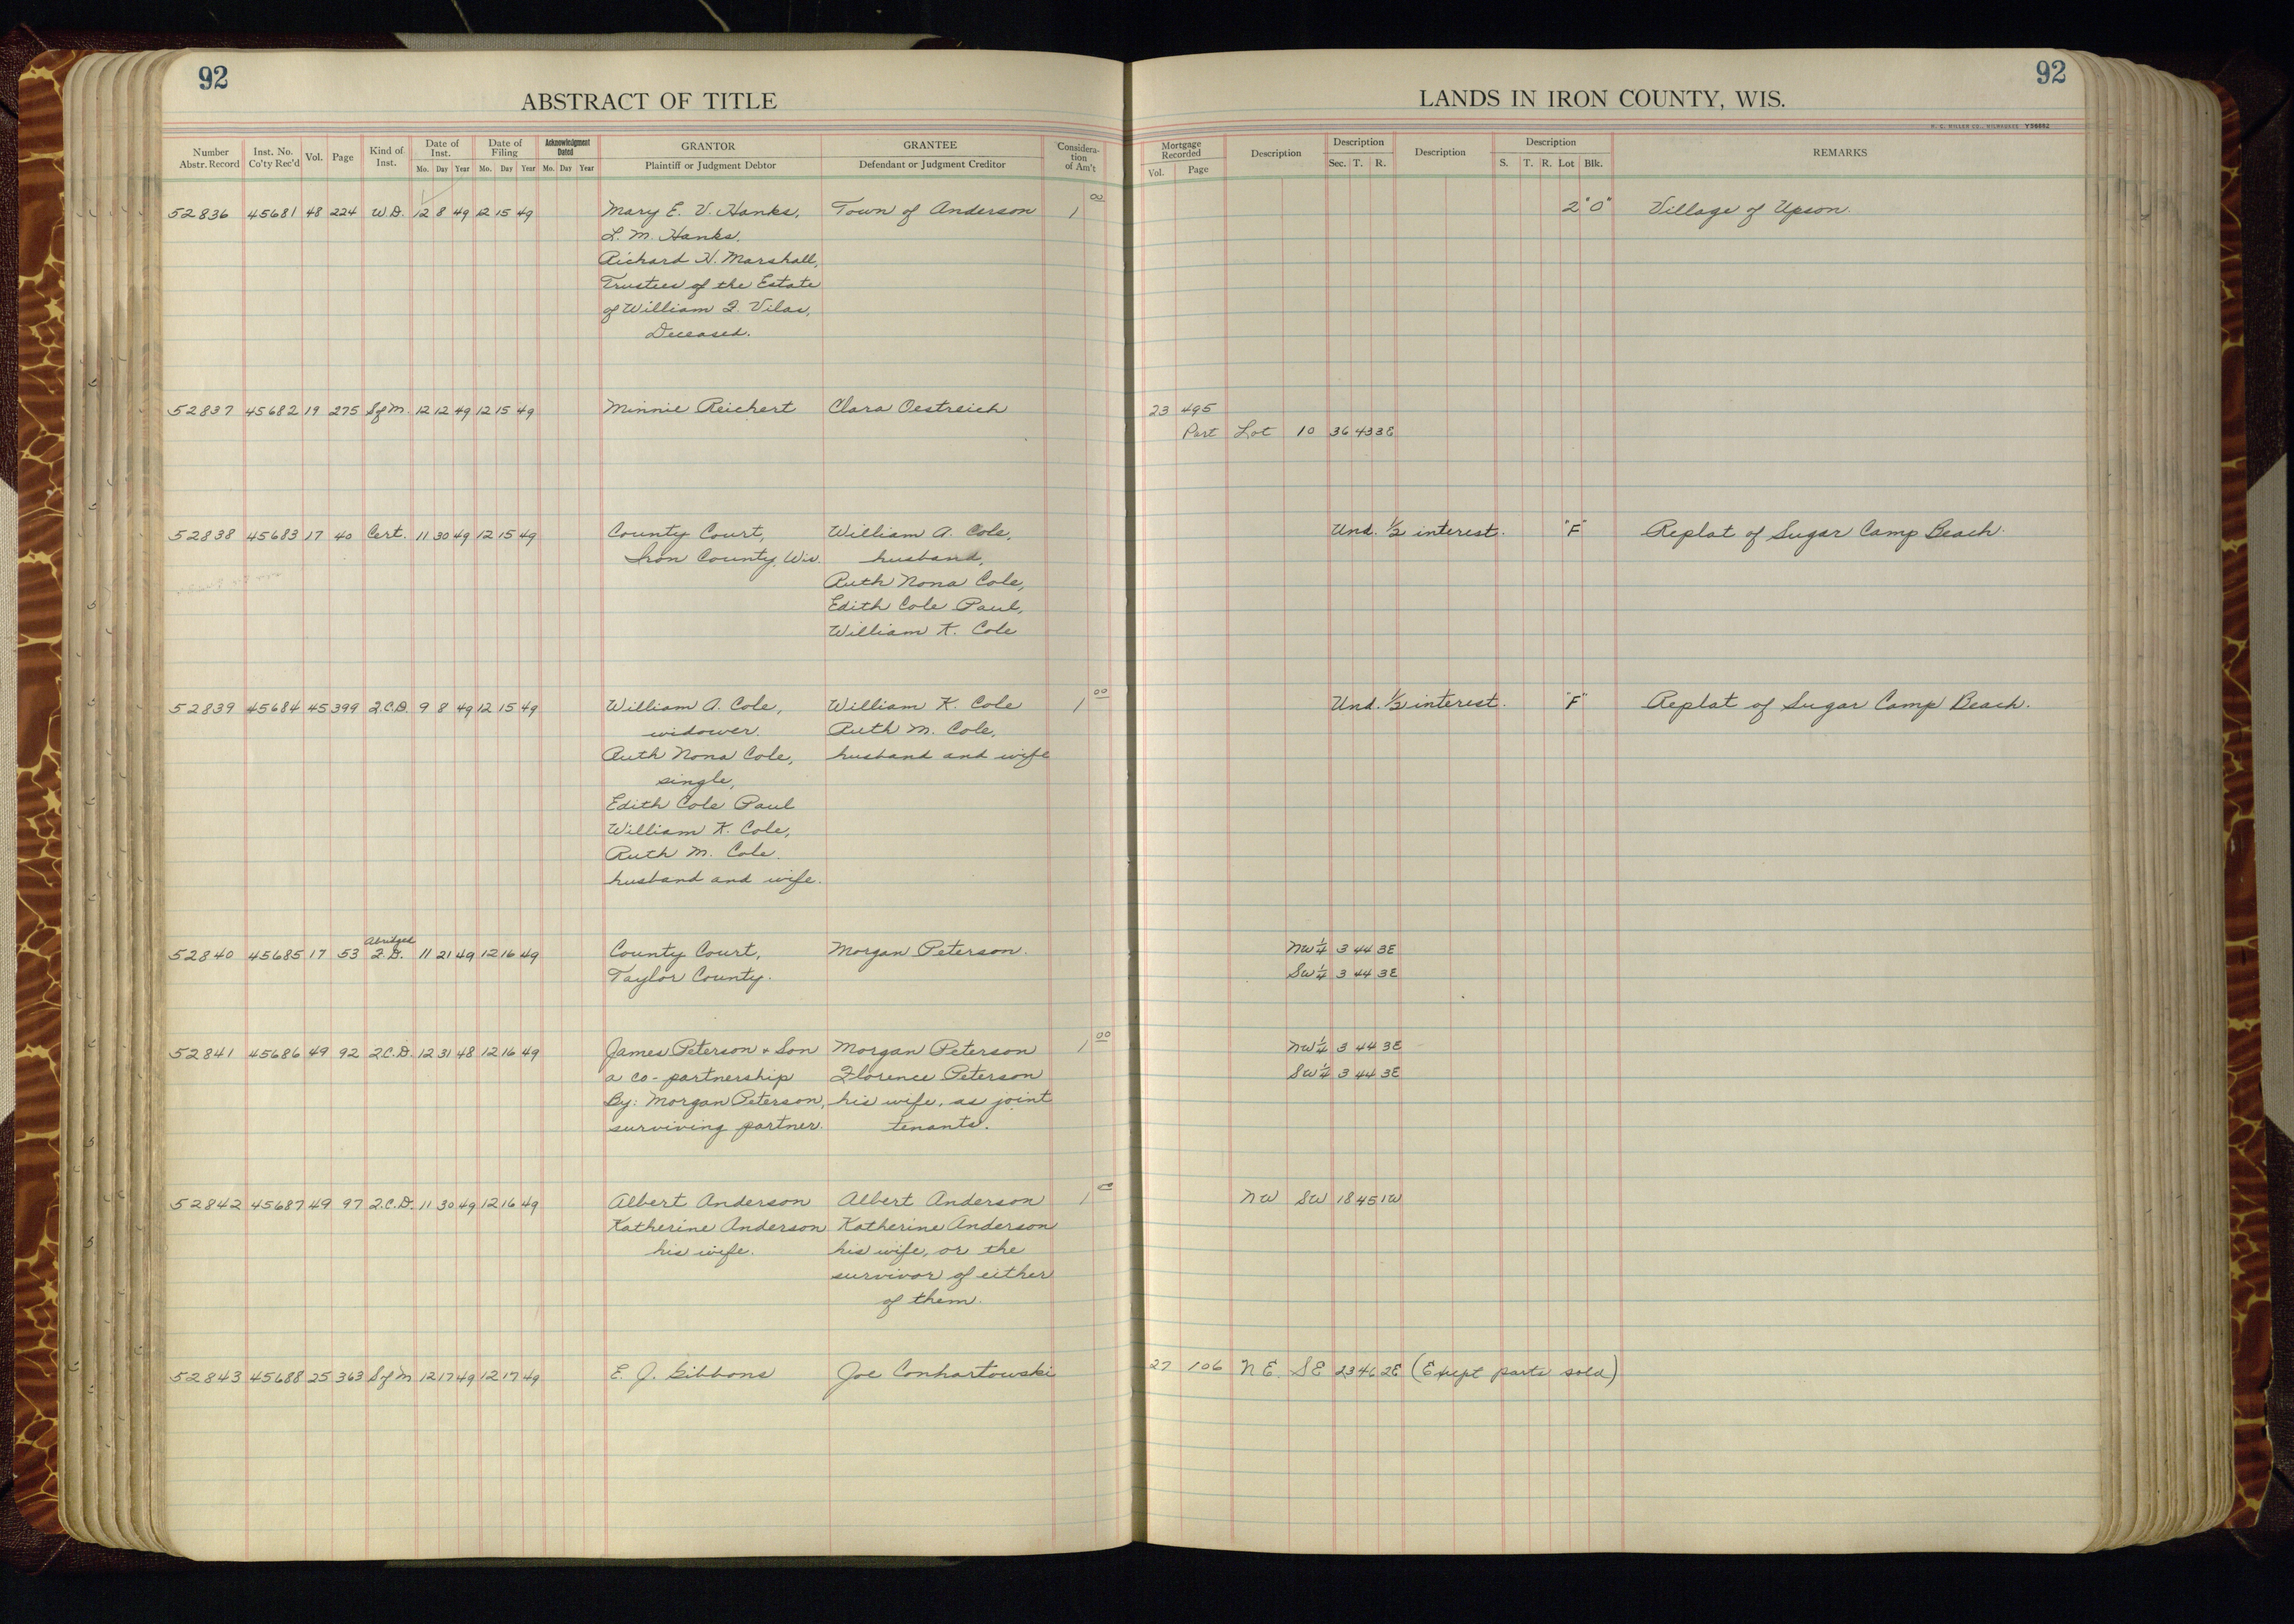 92
92
ABSTRACT OF TITLE
LANDS IN IRON COUNTY, WIS.
H. C. MILLER CO., MILWAUKEE Y56662
Number Abstr. Record Inst. No. Co'ty Rec'd Vol. Page Kind of Inst. Date of Inst. Mo. Day Year Date of Filing Mo. Day Year Acknowledgment Dated Mo. Day Year GRANTOR Plaintiff or Judgment Debtor GRANTEE Defendant or Judgment Creditor Consideration of Am't
Mortgage Recorded Vol. Page Description Description Sec. T. R. Description Description S. T. R. Lot Blk. REMARKS
52836 45681 48 224 W.D. 12 8 49 12 15 49 Mary E. V. Hanks, Town of Anderson 1 00 2 "O" Village of Upson.
L. M. Hanks,
Richard H. Marshall,
Trustees of the Estate
of William F. Vilas,
Deceased.
52837 45682 19 275 SofM. 12 12 49 12 15 49 Minnie Reichert Clara Oestreich 23 495
Part Lot 10 36 43 3E
52838 45683 17 40 Cert. 11 30 49 12 15 49 County Court, William A. Cole, Und. 1/2 interest. "F" Replat of Sugar Camp Beach.
Iron County, Wis. husband,
Ruth Nona Cole,
Edith Cole Paul,
William K. Cole
52839 45684 45 399 Q.C.D. 9 8 49 12 15 49 William A. Cole, William K. Cole 1 00 Und. 1/2 interest. "F" Replat of Sugar Camp Beach.
widower. Ruth M. Cole,
Ruth Nona Cole, husband and wife
single,
Edith Cole Paul
William K. Cole,
Ruth M. Cole.
husband and wife.
Abridged
52840 45685 17 53 F.D. 11 21 49 12 16 49 County Court, Morgan Peterson. NW 1/4 3 44 3E
Taylor County. SW 1/4 3 44 3E
52841 45686 49 92 Q.C.D. 12 31 48 12 16 49 James Peterson & Son Morgan Peterson 1 00 NW 1/4 3 44 3E
a co-partnership Florence Peterson SW 1/4 3 44 3E
By: Morgan Peterson, his wife, as joint
surviving partner. tenants.
52842 45687 49 97 Q.C.D. 11 30 49 12 16 49 Albert Anderson Albert Anderson 1 NW SW 18 45 1W
Katherine Anderson Katherine Anderson
his wife. his wife, or the
survivor of either
of them.
52843 45688 25 363 SofM 12 17 49 12 17 49 E. J. Gibbons Joe Conhartowski 27 106 NE. SE 23 46 2E (Exept parts sold)